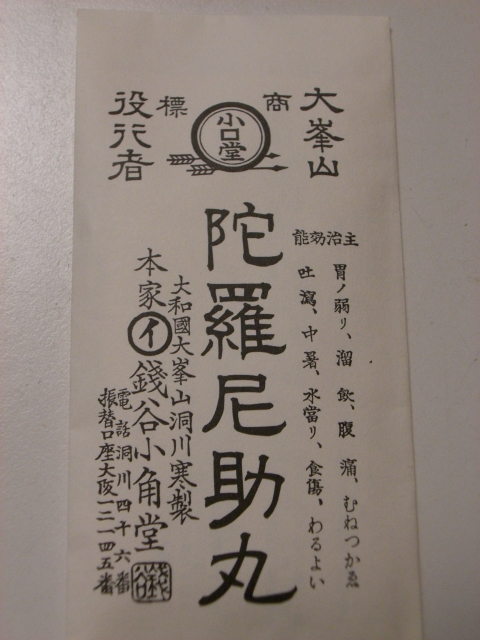 大峯山
商標
小口堂
役行者
主治効能
胃ノ弱リ、溜飲、腹痛、むねつかゑ
吐瀉、中暑、水當リ、食傷、わるよい
陀羅尼助丸
大和國大峯山洞川寒製
本家㋑錢谷小角堂
電話洞川四十六番
振替口座大阪一二一四五番